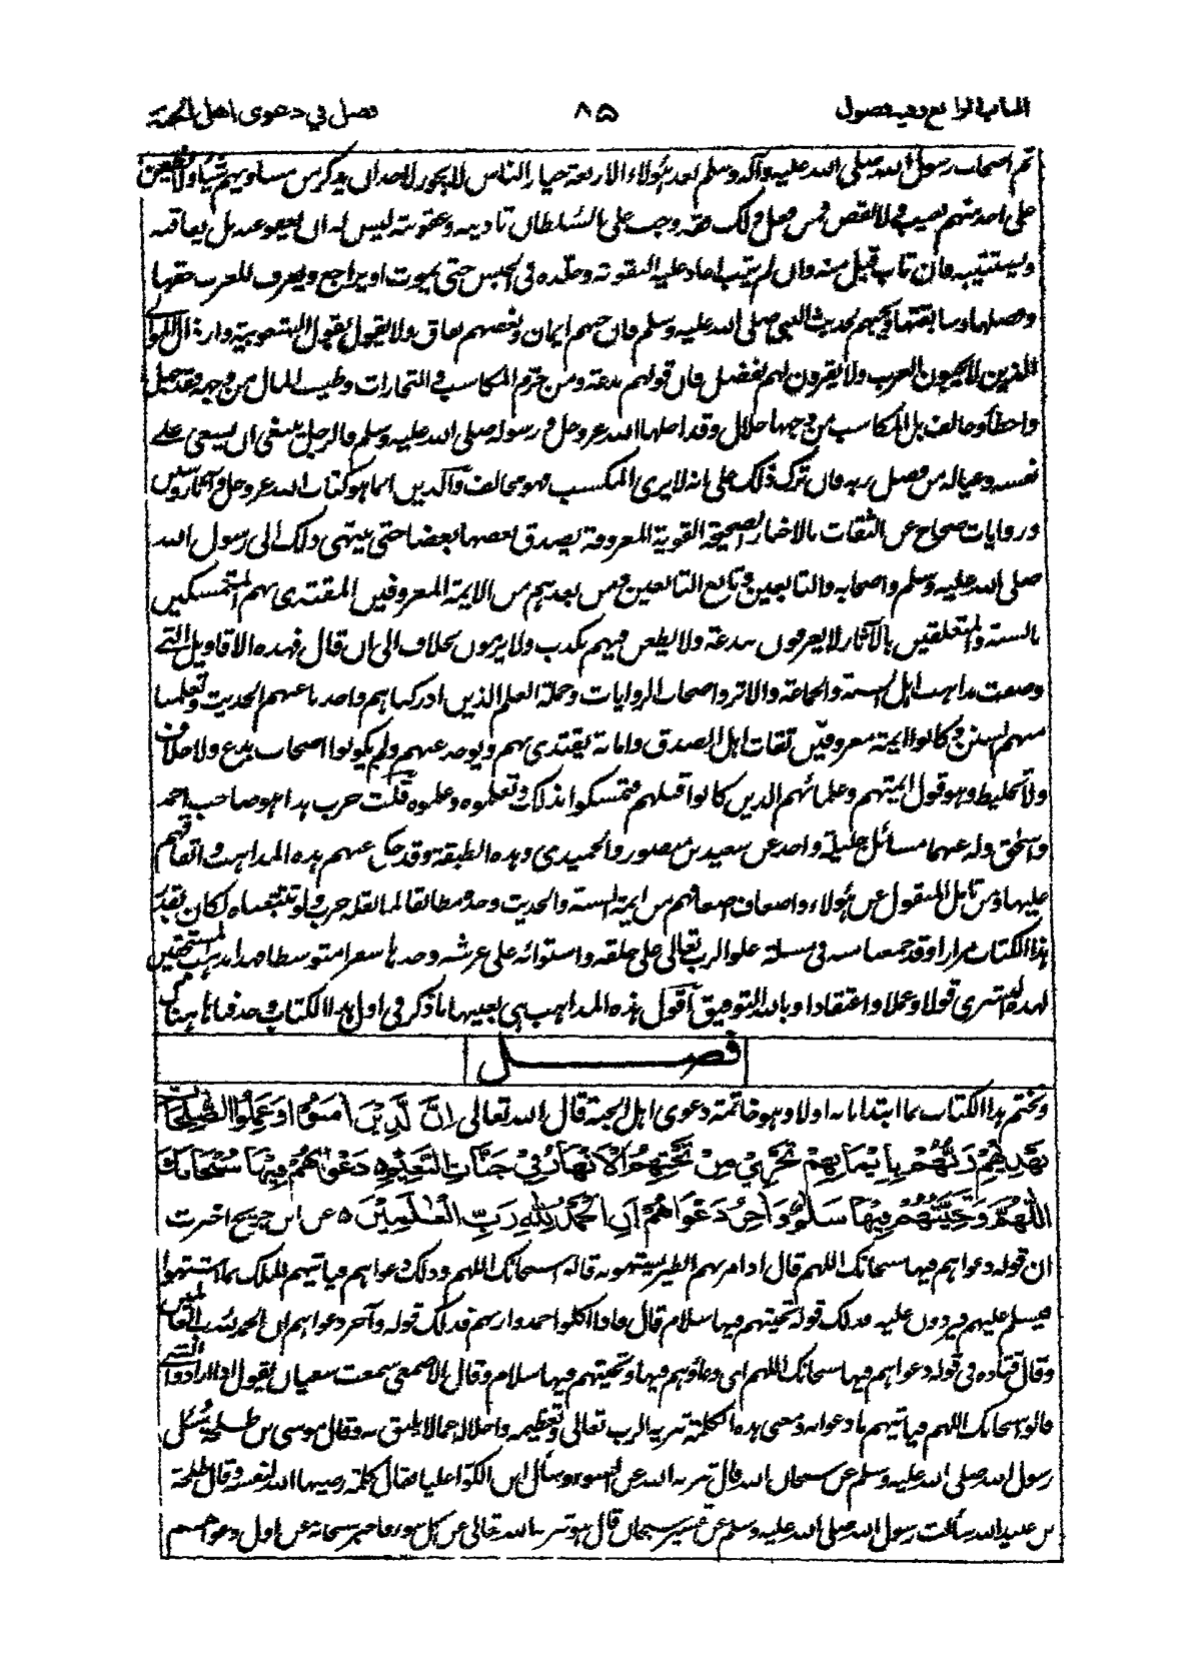 الباب الرابع وفيه فصول ٨٥ فصل في دعوى اهل الجنة
ثم اصحاب رسول الله صلى الله عليه وآله وسلم بعد هؤلاء الاربعة خيار الناس لا يجوز لاحد ان يذكر من مساويهم شيئا ولا يطعن
على احد منهم بعيب ولا نقص فمن فعل ذلك فقد وجب على السلطان تاديبه وعقوبته ليس له ان يعفو عنه بل يعاقبه
ويستتيبه فان تاب قبل منه وان لم يتب اعاد عليه العقوبة وخلده في الحبس حتى يموت او يراجع ويعرف للعرب حقها
وفضلها وسابقتها ويحبهم لحديث النبي صلى الله عليه وسلم فان حبهم ايمان وبغضهم نفاق ولا يقول بقول الشعوبية واراذل الموالي
الذين لا يحبون العرب ولا يقرون لهم بفضل فان قولهم بدعة ومن حرم المكاسب والتجارات وطيب المال من وجهه فقد جهل
واخطأ وخالف بل المكاسب من وجهها حلال وقد احلها الله عز وجل ورسوله صلى الله عليه وسلم فالرجل ينبغي ان يسعى على
نفسه وعياله من فضل ربه فان ترك ذلك على انه لا يرى المكسب فهو مخالف والدين انما هو كتاب الله عز وجل وآثار وسنن
وروايات صحاح عن الثقات بالاخبار الصحيحة القوية المعروفة يصدق بعضها بعضا حتى ينتهي ذلك الى رسول الله
صلى الله عليه وسلم واصحابه والتابعين وتابع التابعين ومن بعدهم من الايمة المعروفين المقتدى بهم المتمسكين
بالسنة والمتعلقين بالآثار لا يعرفون ببدعة ولا يطعن فيهم بكذب ولا يرمون بخلاف الى ان قال فهذه الاقاويل التي
وصفت مذاهب اهل السنة والجماعة والاثر واصحاب الروايات وحملة العلم الذين ادركناهم واخذنا عنهم الحديث وتعلمنا
منهم السنن وكانوا ايمة معروفين ثقات اهل الصدق وامانة يقتدى بهم ويوخذ عنهم ولم يكونوا اصحاب بدع ولا خلاف
ولا تخليط وهو قول ايمتهم وعلمائهم الذين كانوا قبلهم فتمسكوا بذلك وتعلموه وعلموه قلت حرب هذا هو صاحب احمد
واسحق وله عنهما مسائل جليلة واخذ عن سعيد بن منصور والحميدي وهذه الطبقة وقد حكى عنهم هذه المذاهب واتفاقهم
عليها ومن تامل المنقول عن هؤلاء واضعاف اضعافهم من ايمة السنة والحديث وجده مطابقا لما نقله حرب ولو تتبعناه لكان بقدر
هذا الكتاب مرارا وقد جمعنا منه في مسئلة علو الرب تعالى على خلقه واستوائه على عرشه وحدها سفرا متوسطا فهذا مذهب المستحقين
لهذه البشرى قولا وعملا واعتقادا وبالله التوفيق اقول هذه المذاهب هي بعينها ما ذكر في اول هذا الكتاب وحذفناها هناك
فصل
ونختم هذا الكتاب بما ابتدانا به اولا وهو خاتمة دعوى اهل الجنة قال الله تعالى اِنَّ الَّذِيْنَ اٰمَنُوْا وَعَمِلُوا الصّٰلِحَاتِ
يَهْدِيْهِمْ رَبُّهُمْ بِاِيْمَانِهِمْ تَجْرِيْ مِنْ تَحْتِهِمُ الْاَنْهَارُ فِيْ جَنَّاتِ النَّعِيْمِ دَعْوَاهُمْ فِيْهَا سُبْحَانَكَ
اللّٰهُمَّ وَتَحِيَّتُهُمْ فِيْهَا سَلَامٌ وَاٰخِرُ دَعْوَاهُمْ اَنِ الْحَمْدُ لِلّٰهِ رَبِّ الْعٰلَمِيْنَ ه عن ابن جريج اخبرت
ان قوله دعواهم فيها سبحانك اللهم قال اذا مر بهم الطير يشتهونه قالوا سبحانك اللهم وذلك دعواهم فياتيهم الملك بما اشتهوا
فيسلم عليهم فيردون عليه فذلك قوله تحيتهم فيها سلام قال فاذا اكلوا حمدوا ربهم فذلك قوله وآخر دعواهم ان الحمد لله رب العالمين
وقال قتادة في قوله دعواهم فيها سبحانك اللهم اي دعاؤهم فيها وتحيتهم فيها سلام وقال الاصمعي سمعت سفيان يقول اذا ارادوا الشئ
قالوا سبحانك اللهم فياتيهم ما دعوا به ومعنى هذه الكلمة تنزيه الرب تعالى وتعظيمه واجلاله عما لا يليق به وقال موسى بن طلحة سئل
رسول الله صلى الله عليه وسلم عن سبحان الله قال تنزيه الله عن السوء وسأل ابن الكوا عليا فقال كلمة رضيها الله لنفسه وقال طلحة
بن عبيد الله سألت رسول الله صلى الله عليه وسلم عن تفسير سبحان قال هو تنزيه الله تعالى عن كل سوء فاخبر سبحانه عن اول دعواهم